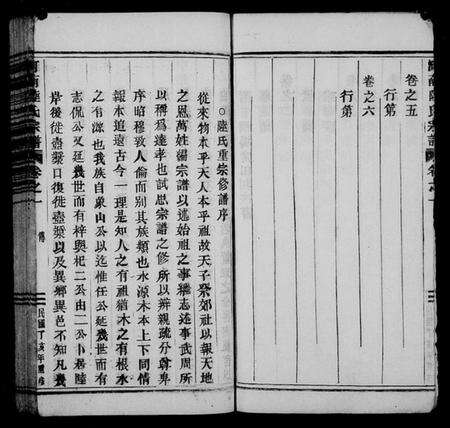 卷之五
行第
卷之六
行第
陸氏重宗修譜序
從來物本乎天人本乎祖故天子祭郊社以報天地
之恩萬姓編宗譜以述始祖之事繼志述事武周所
以稱為達孝也試思宗譜之修所以辨親疏分尊卑
序昭穆致人倫而別其族類也水源木本上下同情
報本追遠古今一理是知人之有祖猶木之有根水
之有源也我族自象山公以迄惟任公延幾世而有
志侃公又延幾世而有梓與杞二公由二公卜居陸
岸後徙壺漿口復徙壺漿以及異鄉異邑不知凡幾
河南陸氏宗譜 卷之一
民國丁亥年重修